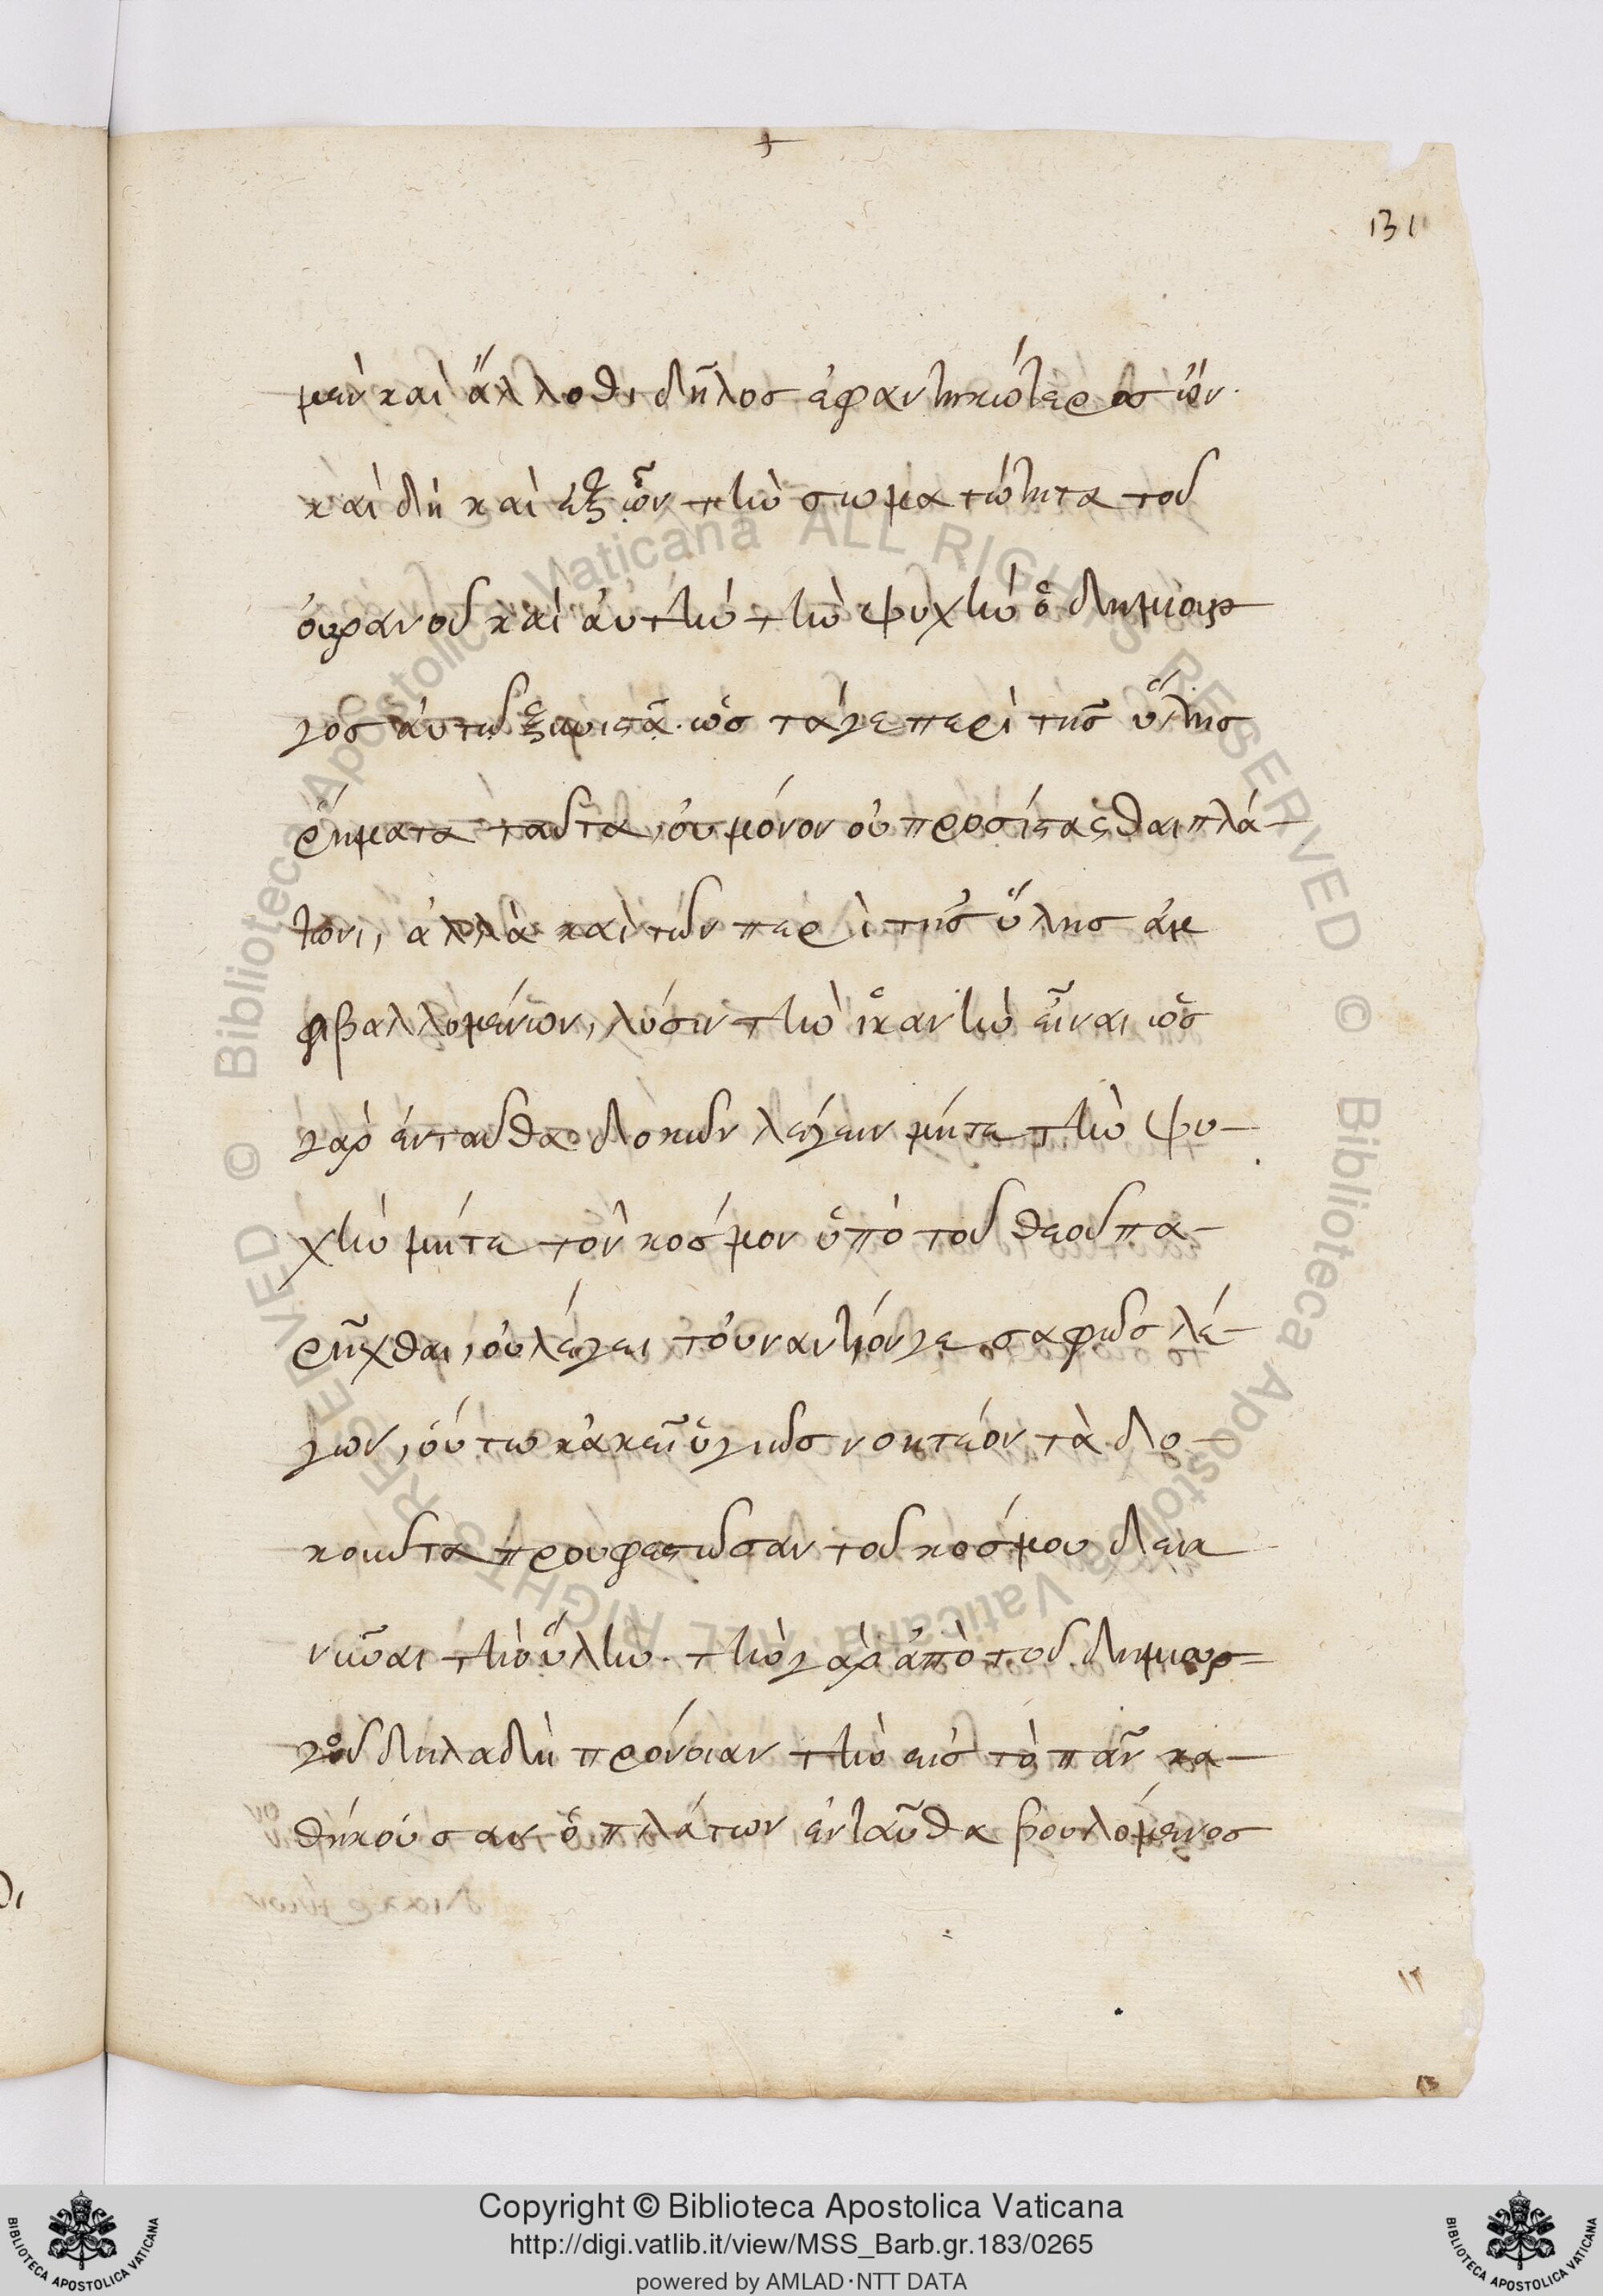 131
μὲν καὶ ἄλλοθι δῆλος ἐφαντικώτερος ὤν.
καὶ δὴ καὶ ἐξ ὧν τὴν σωματότητα τοῦ
οὐρανοῦ καὶ αὐτὴν τὴν ψυχὴν ὁ δημιουρ
γὸς αὐτῶ ὡς τάγε περὶ τῆς ὕλης
ῥήματα ταῦτα, οὐ μόνον οὐ προσίστασθαι πλά-
τωνι, ἀλλὰ καὶ τῶν περὶ τῆς ὕλης ἀμ
φιβαλλομένων, λύσιν τὴν ἱκανὴν εἶναι ὡς
γὰρ ἐνταῦθα δοκῶν λέγειν μήτε τὴν ψυ-
χὴν μήτε τὸν κόσμον ὑπὸ τοῦ θεοῦ πα-
ρῆχθαι, οὐ λέγει τοὐναντίον γε σαφῶς λέ-
γων, οὕτω κἀκεῖ ὑγιῶς νοητέον τὰ δο-
κοῦντα προυφεστῶσαν τοῦ κόσμου δεικ
νῦναι τὴν ὕλην. τὴν γὰρ ἀπὸ τοῦ δημιουρ=
γοῦ δηλαδὴ πρόνοιαν τὴν εἰς τὸ πᾶν κα-
θήκουσαν ὁ πλάτων ἐνταῦθα βουλόμενος
Copyright © Biblioteca Apostolica Vaticana
http://digi.vatlib.it/view/MSS_Barb.gr.183/0265
powered by AMLAD·NTT DATA